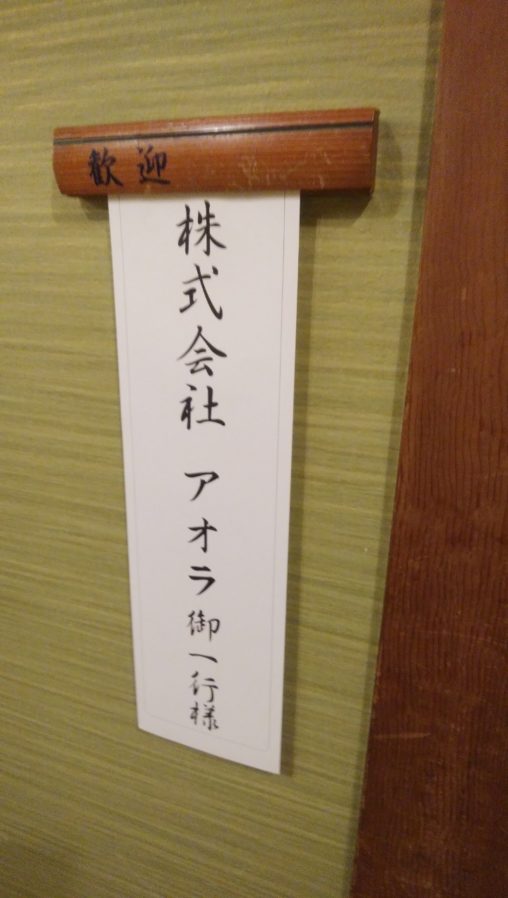 歓迎
株式会社 アオラ御一行様